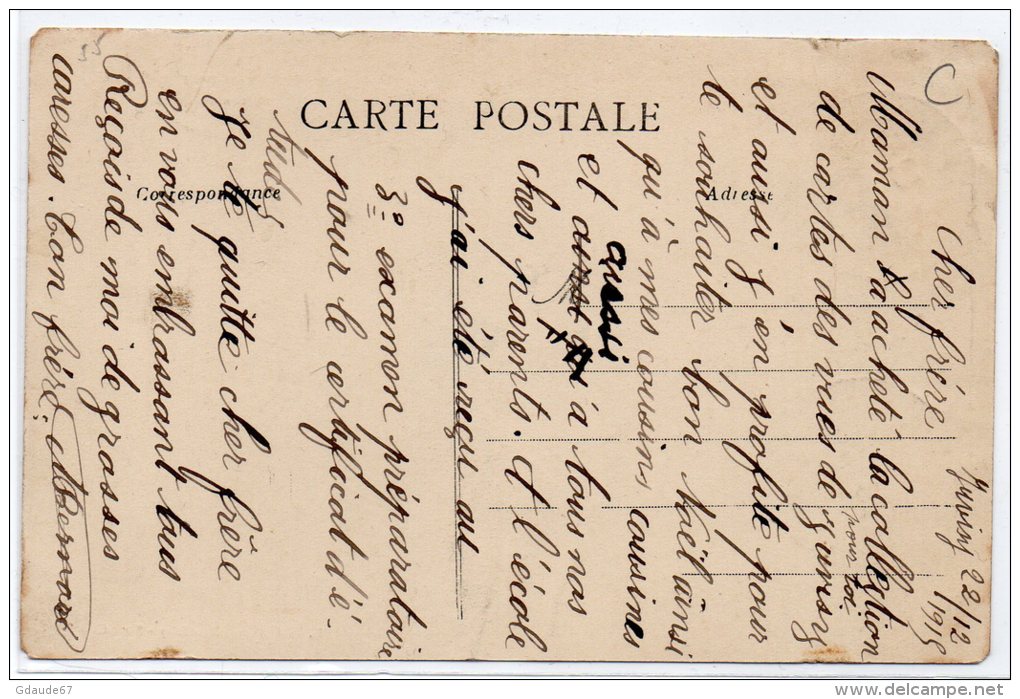 CARTE POSTALE
Correspondance
Adresse
Juvisy 22/12 1915
Cher frère
Maman a acheté la collection
de cartes des vues de Juvisy
pour toi
et aussi j'en profite pour
te souhaiter bon Noël ainsi
qu'à mes cousins cousines
et aussi à tous nos
chers parents. A l'école
j'ai été reçu au
3º examen préparatoire
pour le certificat d'é-
tudes
Je te quitte cher frère
en vous embrassant tous
Reçois de moi de grosses
caresses. Ton frère
55
C
Gdaude67
www.delcampe.net